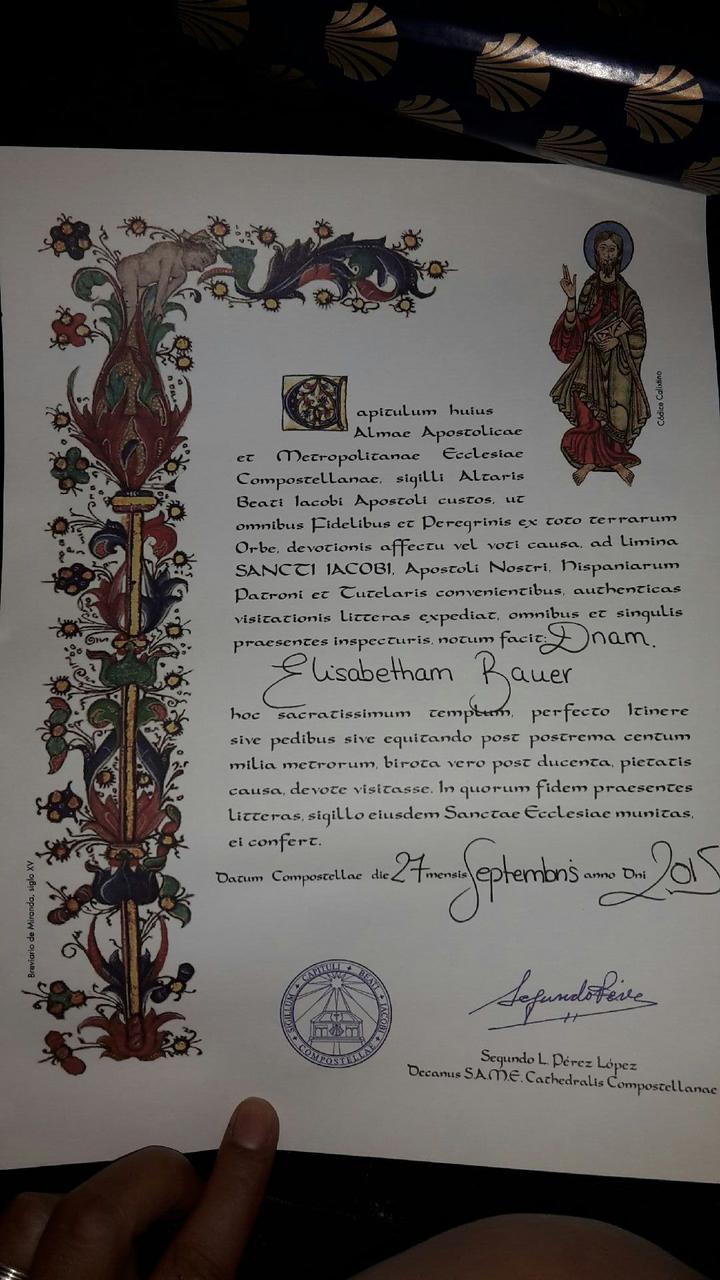 Códice Calixtino
Capitulum huius
Almae Apostolicae
et Metropolitanae Ecclesiae
Compostellanae, sigilli Altaris
Beati Iacobi Apostoli custos, ut
omnibus Fidelibus et Peregrinis ex toto terrarum
Orbe, devotionis affectu vel voti causa, ad limina
SANCTI IACOBI, Apostoli Nostri, Hispaniarum
Patroni et Tutelaris convenientibus, authenticas
visitationis litteras expediat, omnibus et singulis
praesentes inspecturis, notum facit: Dnam.
Elisabetham Bauer
hoc sacratissimum templum, perfecto Itinere
sive pedibus sive equitando post postrema centum
milia metrorum, birota vero post ducenta, pietatis
causa, devote visitasse. In quorum fidem praesentes
litteras, sigillo eiusdem Sanctae Ecclesiae munitas,
ei confert.
Datum Compostellae die 27 mensis Septembris anno Dni 2015
Breviario de Miranda, siglo XV
SIGILLUM CAPITULI BEATI IACOBI COMPOSTELLAE
Segundo Pérez
Segundo L. Pérez López
Decanus S.A.M.E. Cathedralis Compostellanae